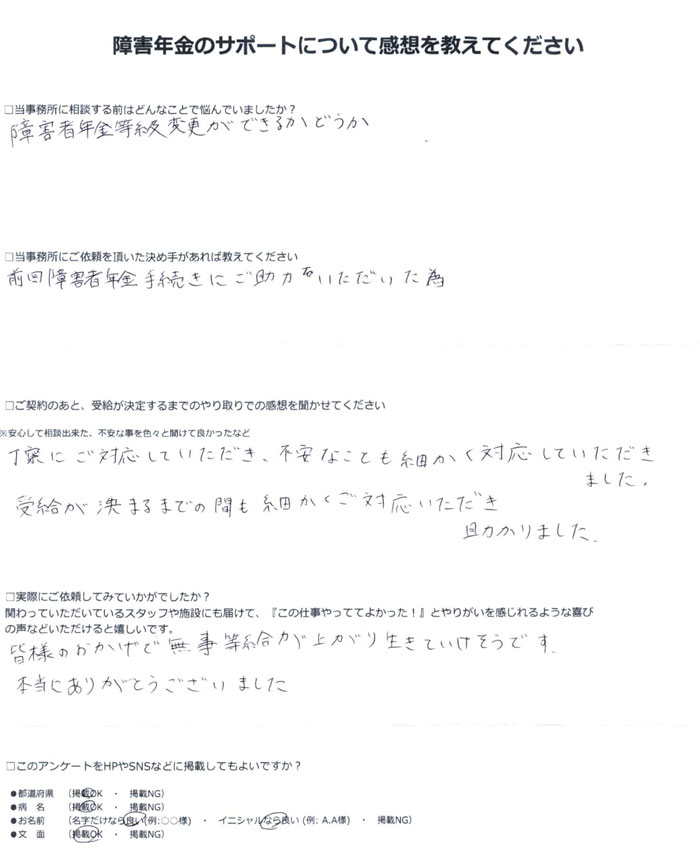 障害年金のサポートについて感想を教えてください
□当事務所に相談する前はどんなことで悩んでいましたか？
障害者年金等級変更ができるかどうか
□当事務所にご依頼を頂いた決め手があれば教えてください
前回障害者年金手続きにご助力をいただいた為
□ご契約のあと、受給が決定するまでのやり取りでの感想を聞かせてください
※安心して相談出来た、不安な事を色々と聞けて良かったなど
丁寧にご対応していただき、不安なことも細かく対応していただき
ました。
受給が決まるまでの間も細かくご対応いただき
助かりました。
□実際にご依頼してみていかがでしたか？
関わっていただいているスタッフや施設にも届けて、『この仕事やっててよかった！』とやりがいを感じれるような喜び
の声などいただけると嬉しいです。
皆様のおかげで無事等給が上がり生きていけそうです。
本当にありがとうございました
□このアンケートをHPやSNSなどに掲載してもよいですか？
●都道府県 （掲載OK ・ 掲載NG）
●病 名 （掲載OK ・ 掲載NG）
●お名前 （名字だけなら良い(例:○○様) ・ イニシャルなら良い (例: A.A様) ・ 掲載NG）
●文 面 （掲載OK ・ 掲載NG）